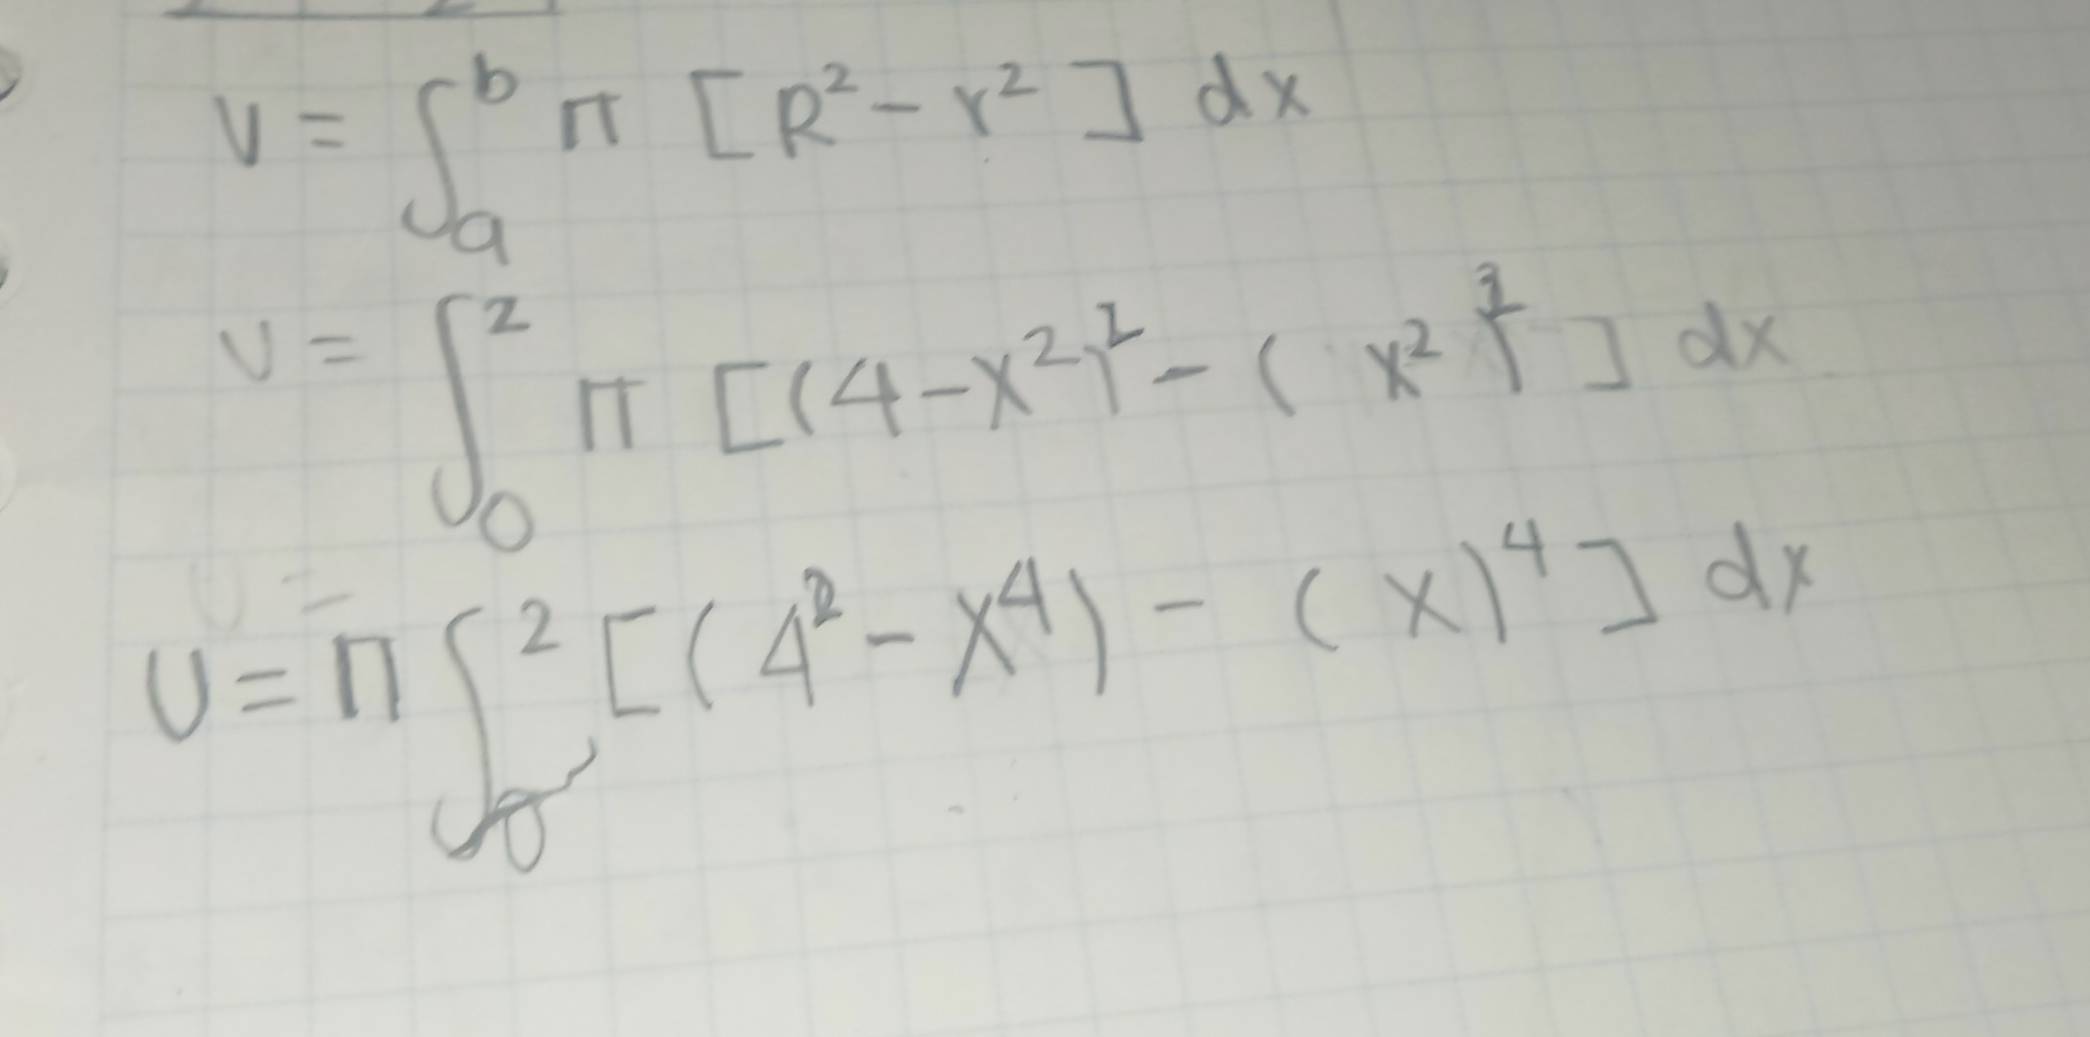 V = ∫ₐᵇ π [R² - r²] dx
V = ∫₀² π [(4-x²)² - ( x² )²] dx
V = π ∫₀² [(4² - x⁴) - (x)⁴] dx